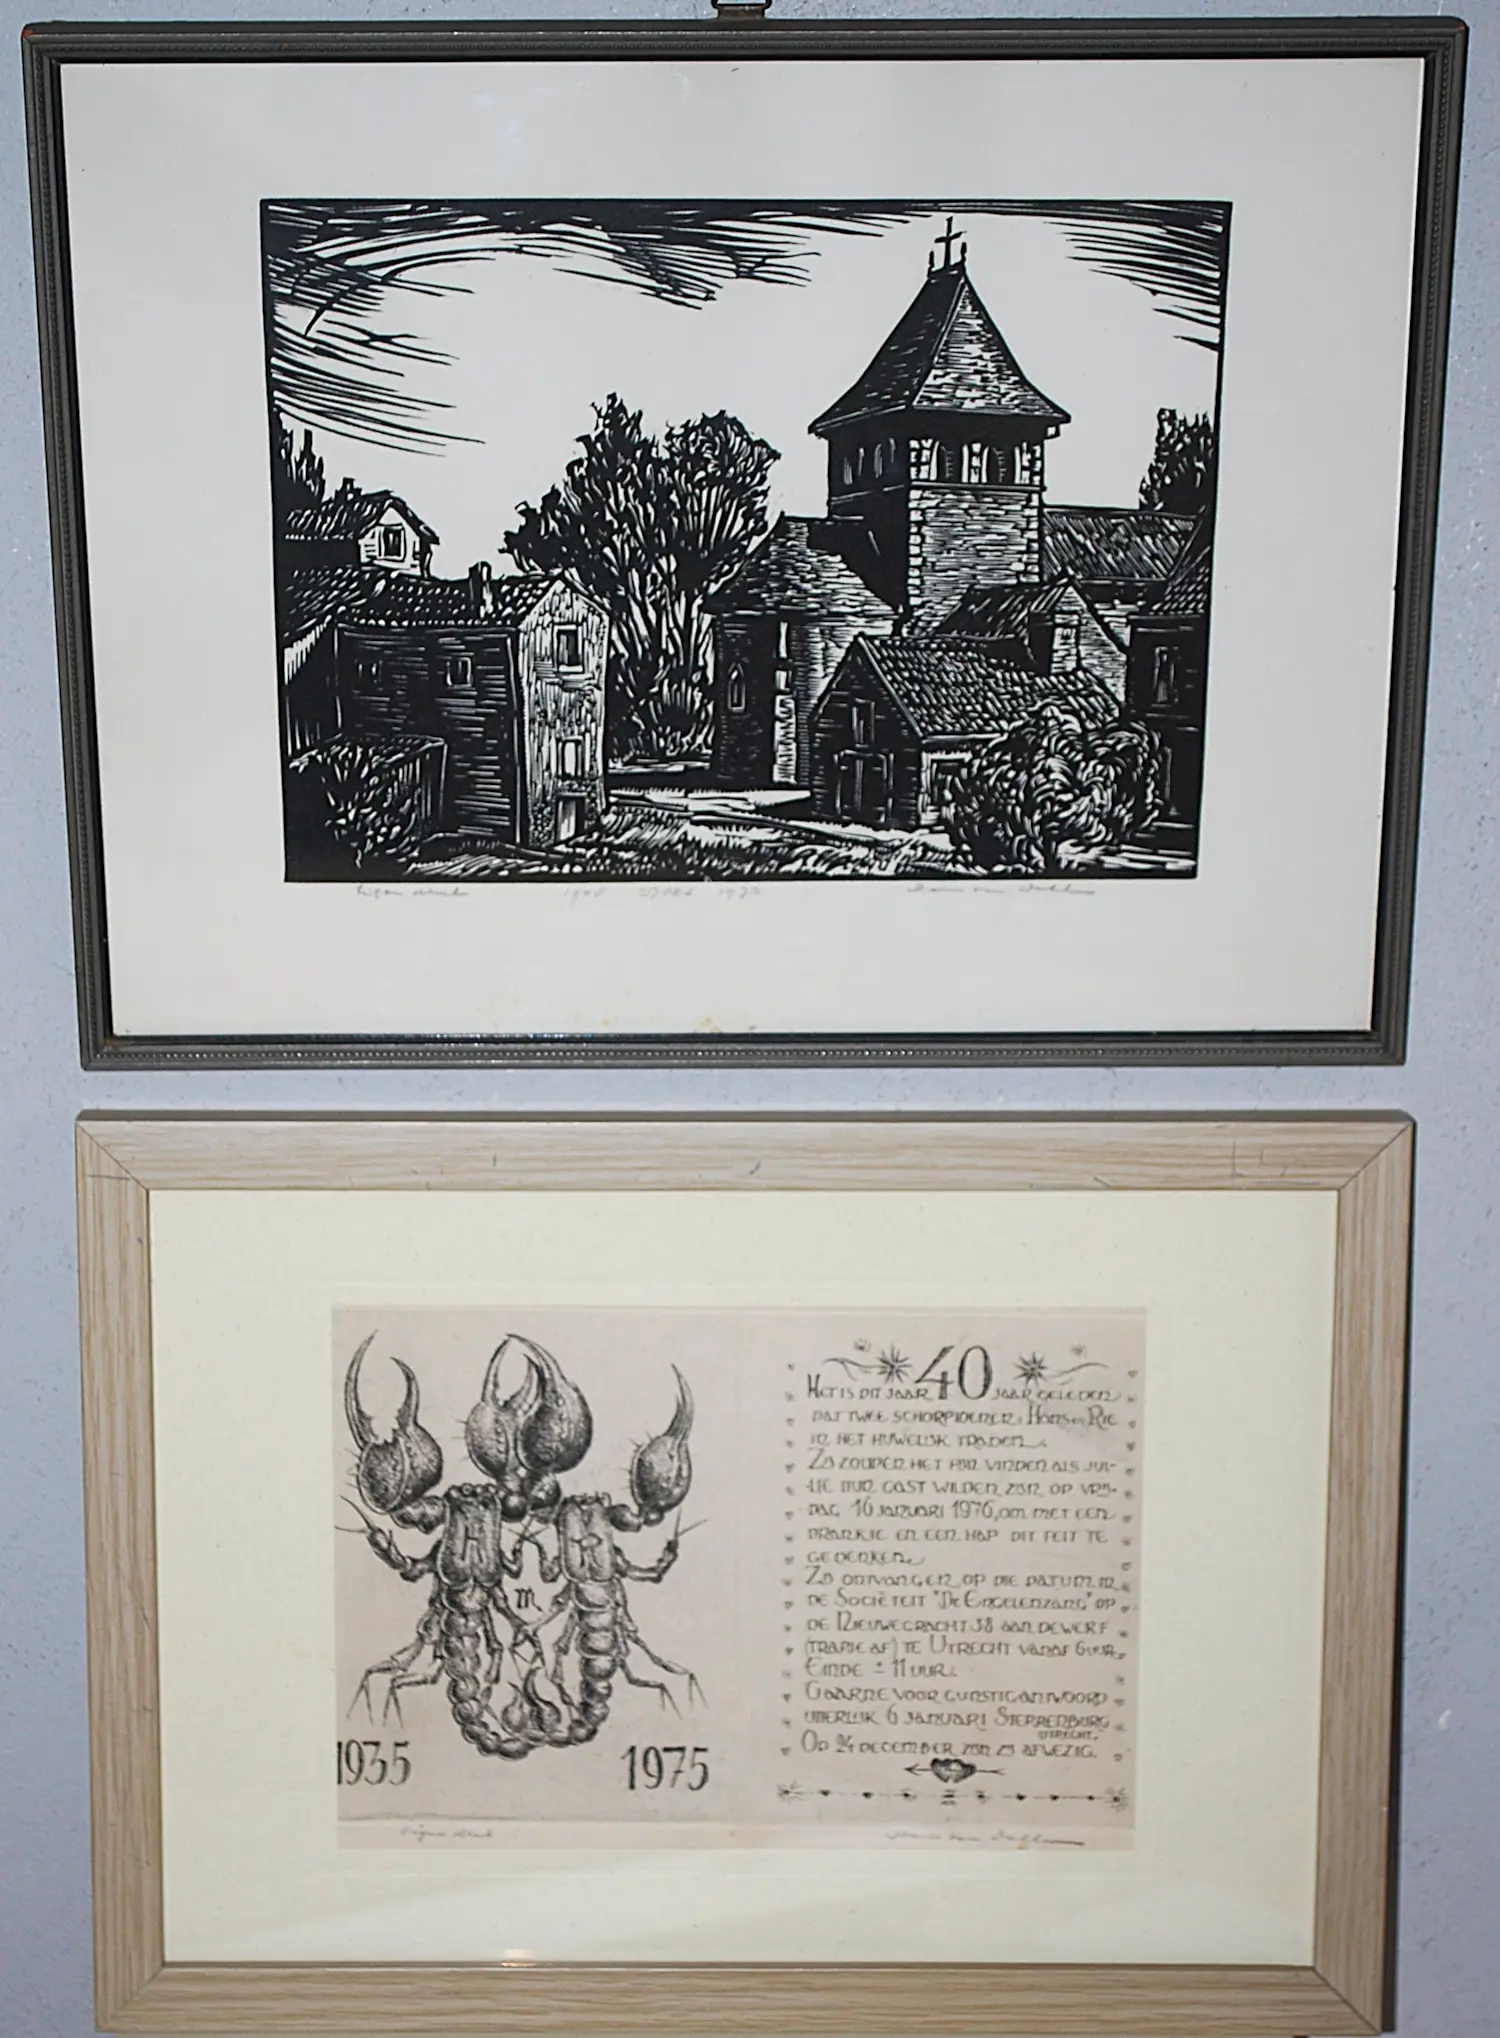 Eigen druk 1973 Hans van Dokkum
H R
1935 1975
HET IS DIT JAAR 40 JAAR GELEDEN
DAT TWEE SCHORPIOENEN: HANS EN RIE
IN HET HUWELIJK TRADEN.
ZIJ ZOUDEN HET FIJN VINDEN ALS JUL-
LIE HUN GAST WILDEN ZIJN OP VRIJ-
DAG 16 JANUARI 1976, OM MET EEN
DRANKJE EN EEN HAP DIT FEIT TE
GEDENKEN.
ZIJ ONTVANGEN OP DIE DATUM IN
DE SOCIËTEIT "DE ENGELENZANG" OP
DE NIEUWEGRACHT 38 AAN DE WERF
(TRAPJE AF) TE UTRECHT VANAF 6 UUR.
EINDE ± 11 UUR.
GAARNE VOOR GUNSTIG ANTWOORD
UITERLIJK 6 JANUARI STERRENBURG
UTRECHT.
OP 24 DECEMBER ZIJN ZIJ AFWEZIG.
Eigen druk Hans van Dokkum